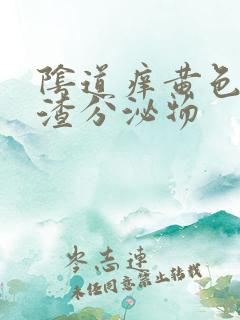 陰道痒黄色
渣分泌物
岑志连
未经同意禁止转载